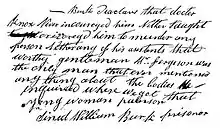 Burk Deaclars that docter
Knox Never incoureged him Nither taught
or incoreged him to murder any
person Nether any of his asistents that
worthy gentleman Mr. Fergeson was
the only man that ever mentioned
any thing about the bodies He
inquired where we got that
yong woman paterson
Sined William Burk prisoner